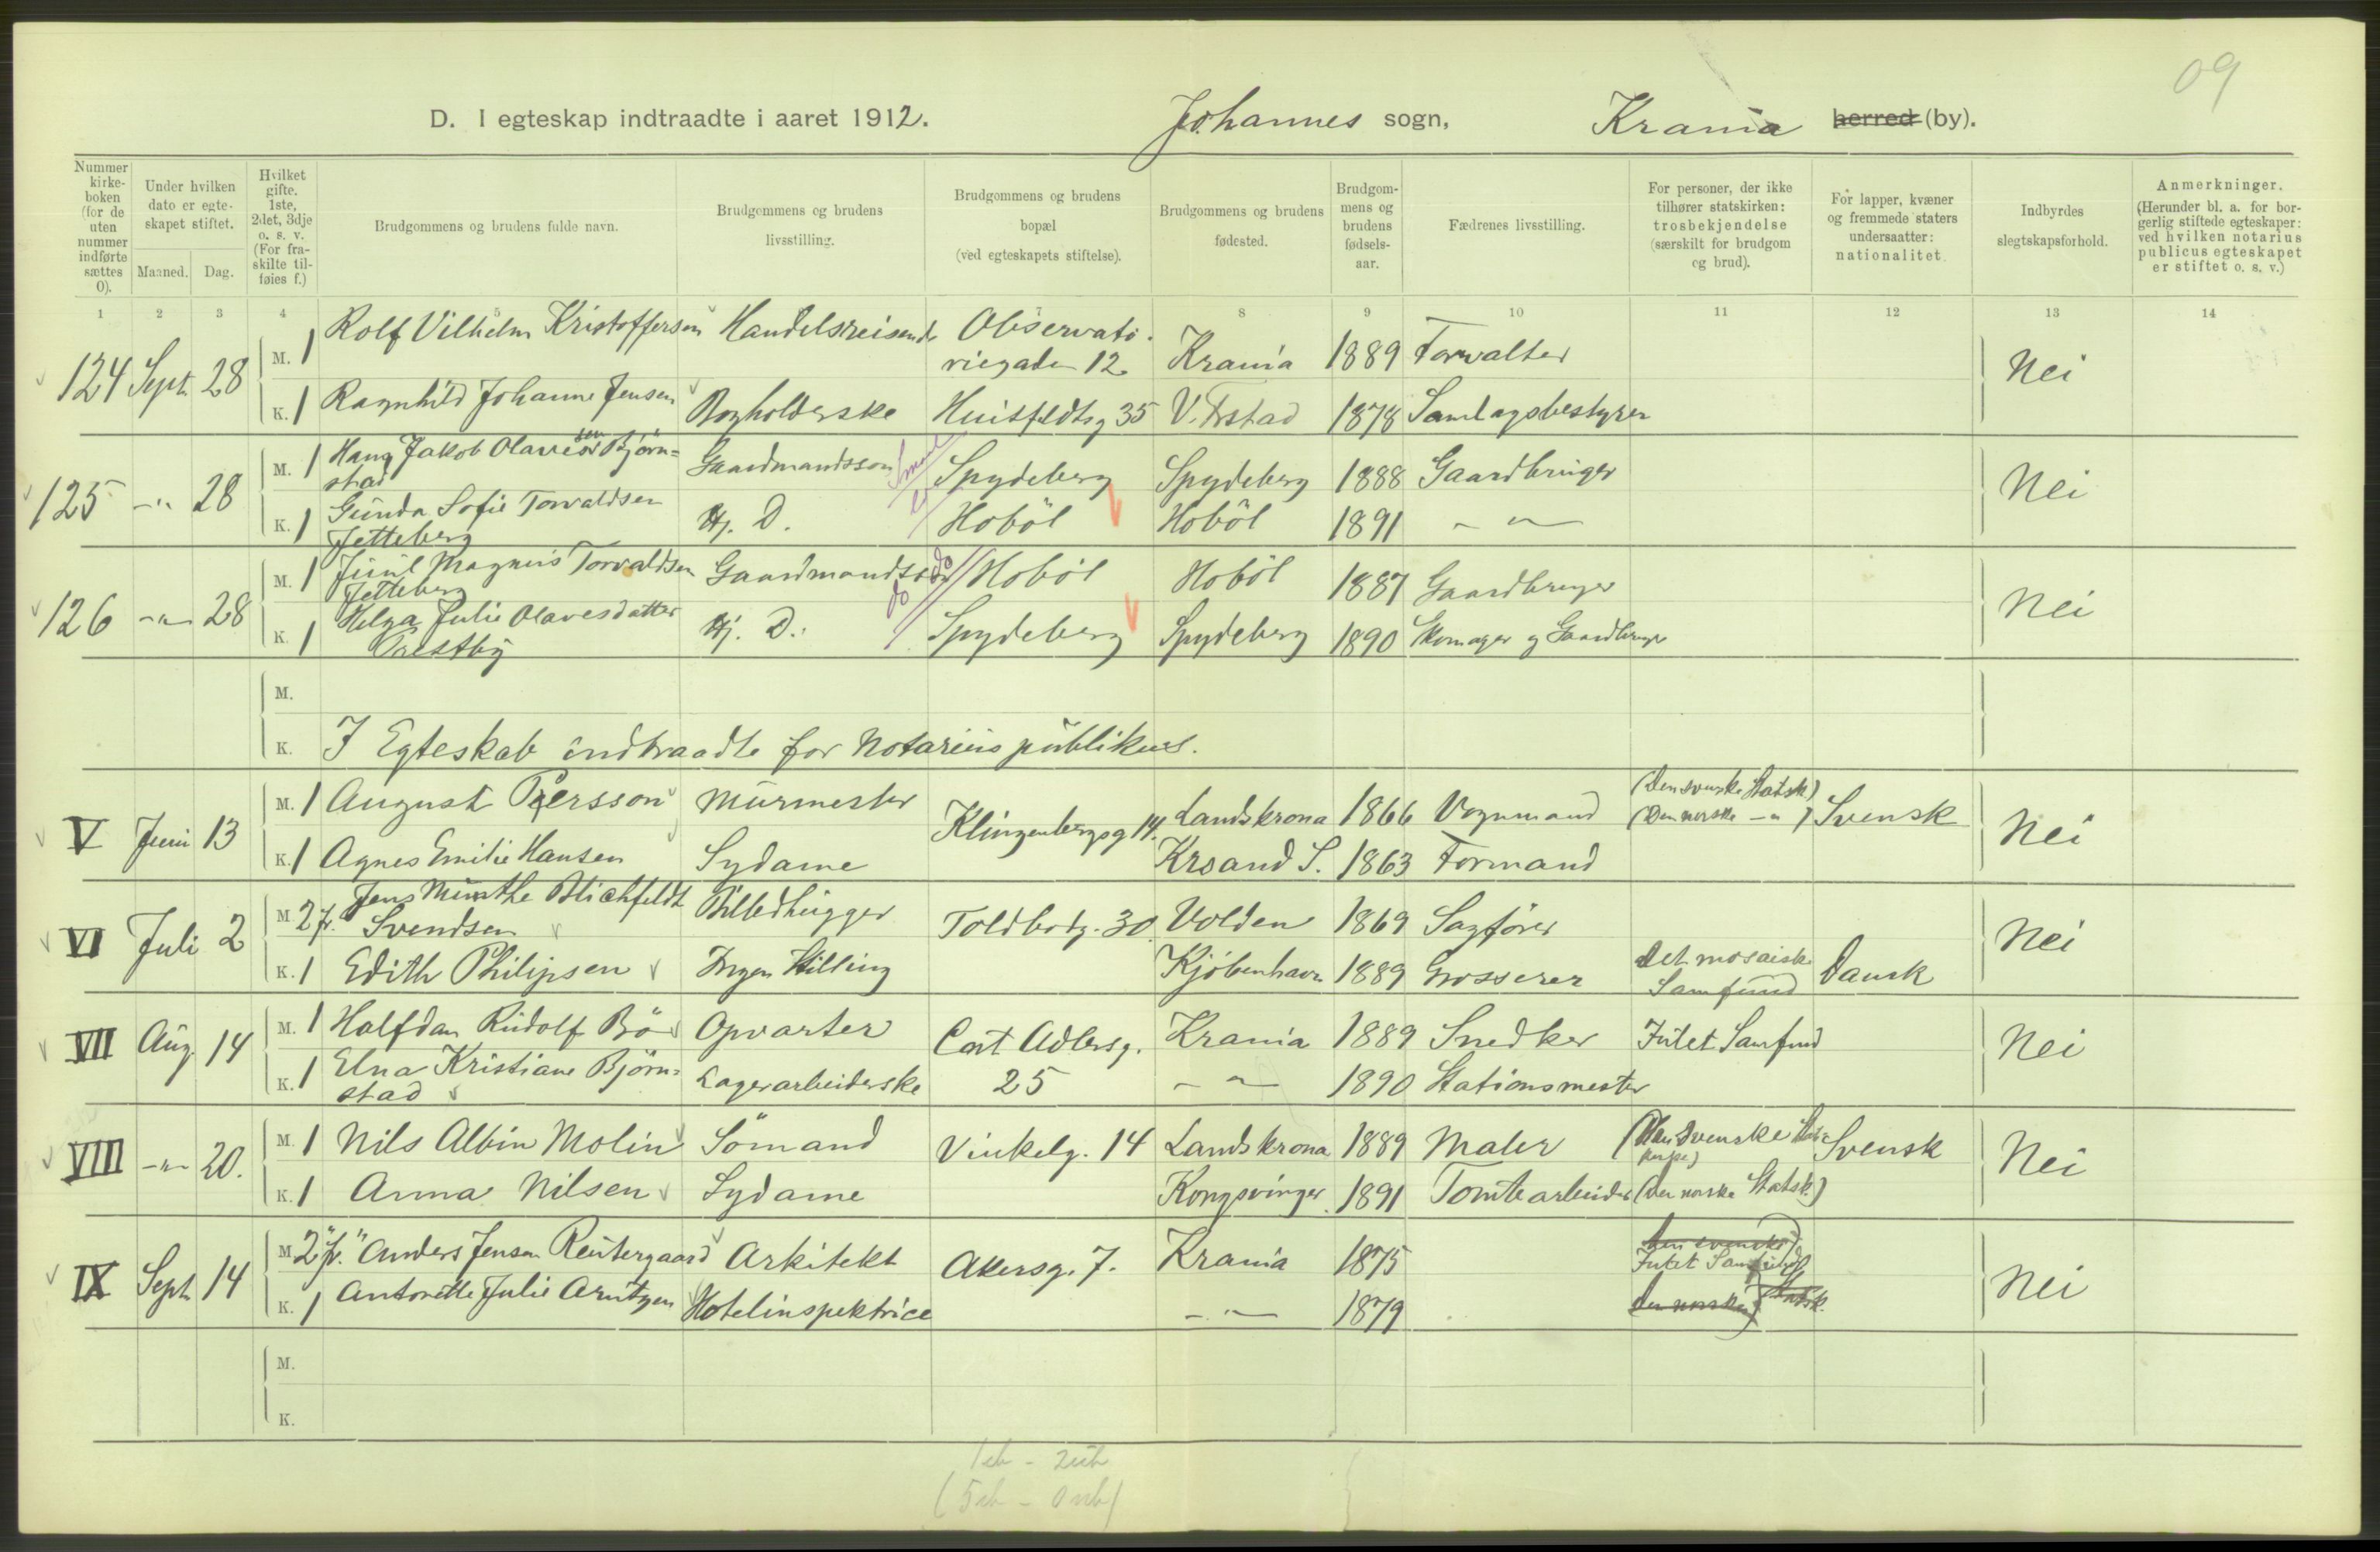 09
D. I egteskap indtraadte i aaret 1912. Johannes sogn, Krania herred (by).
Nummer kirke-boken (for de uten nummer indførte sættes 0).
Under hvilken dato er egte-skapet stiftet. Maaned. Dag.
Hvilket gifte. 1ste, 2det, 3dje o. s. v. (For fra-skilte til-føies f.)
Brudgommens og brudens fulde navn.
Brudgommens og brudens livsstilling.
Brudgommens og brudens bopæl (ved egteskapets stiftelse).
Brudgommens og brudens fødested.
Brudgom-mens og brudens fødsels-aar.
Fædrenes livsstilling.
For personer, der ikke tilhører statskirken: trosbekjendelse (særskilt for brudgom og brud).
For lapper, kvæner og fremmede staters undersaatter: nationalitet.
Indbyrdes slegtskapsforhold.
Anmerkninger. (Herunder bl. a. for bor-gerlig stiftede egteskaper: ved hvilken notarius publicus egteskapet er stiftet o. s. v.)
1 2 3 4 5 7 8 9 10 11 12 13 14
124 Sept. 28 M. 1 Rolf Vilhelm Kristoffersen Handelsreisende Observato-riegaden 12. Krania 1889 Forvalter Nei
K. 1 Ragnhild Johanne Jensen Bogholderske Huitfeldtsg 35 V. Frstad 1878 Samlagsbestyrer
125 -"- 28 M. 1 Hans Jakob Olavesen Bjørn=stad Gaardmandssøn Spydeberg Spydeberg 1888 Gaardbruger Nei
K. 1 Gunda Sofie Torvaldsen Jetteberg Hj. D. Hobøl Hobøl 1891 -"-
126 -"- 28 M. 1 Juul Magnus Torvaldsen Jetteberg Gaardmandssøn do Hobøl Hobøl 1887 Gaardbruger Nei
K. 1 Helga Julie Olavesdatter Prestby Hj. D. do Spydeberg Spydeberg 1890 Skomager og Gaardbruger
M.
K. I Egteskab indtraadte for Notarius publikus.
V Juni 13 M. 1 August Persson Murmester Klingenbergsg 14. Landskrona 1866 Vognmand (Den svenske Statsk) (Den norske -"-) Svensk Nei
K. 1 Agnes Emilie Hansen Sydame Krsand S. 1863 Formand
VI Juli 2 M 2 f. Jens Munthe Blichfeldt Svendsen Billedhugger Toldbodg. 30. Volden 1869 Sagfører Nei
K. 1 Edith Philipsen Ingen Stilling Kjøbenhavn 1889 Grosserer Det mosaiske Samfund Dansk
VII Aug. 14 M. 1 Halfdan Rudolf Bø Opvarter Cort Adlersg. 25 Krania 1889 Snedker Intet Samfund Nei
K. 1 Elna Kristiane Bjørn=stad Lagerarbeiderske -"- 1890 Stationsmester
VIII -"- 20. M. 1 Nils Albin Molin Sømand Vinkelg. 14 Landskrona 1889 Maler (Den Svenske Svensk Nei
K. 1 Anna Nilsen Sydame Kongsvinger 1891 Tomtearbeider (den norske Statsk.)
IX Sept. 14 M 2 "f." Anders Jensen Reutergaard Arkitekt Akersg. 7. Krania 1875 den svenske Intet Samfund Nei
K. 1 Antonette Julie Arntzen Hotelinspektrice -"- 1879 den norske Statsk.
M.
K.